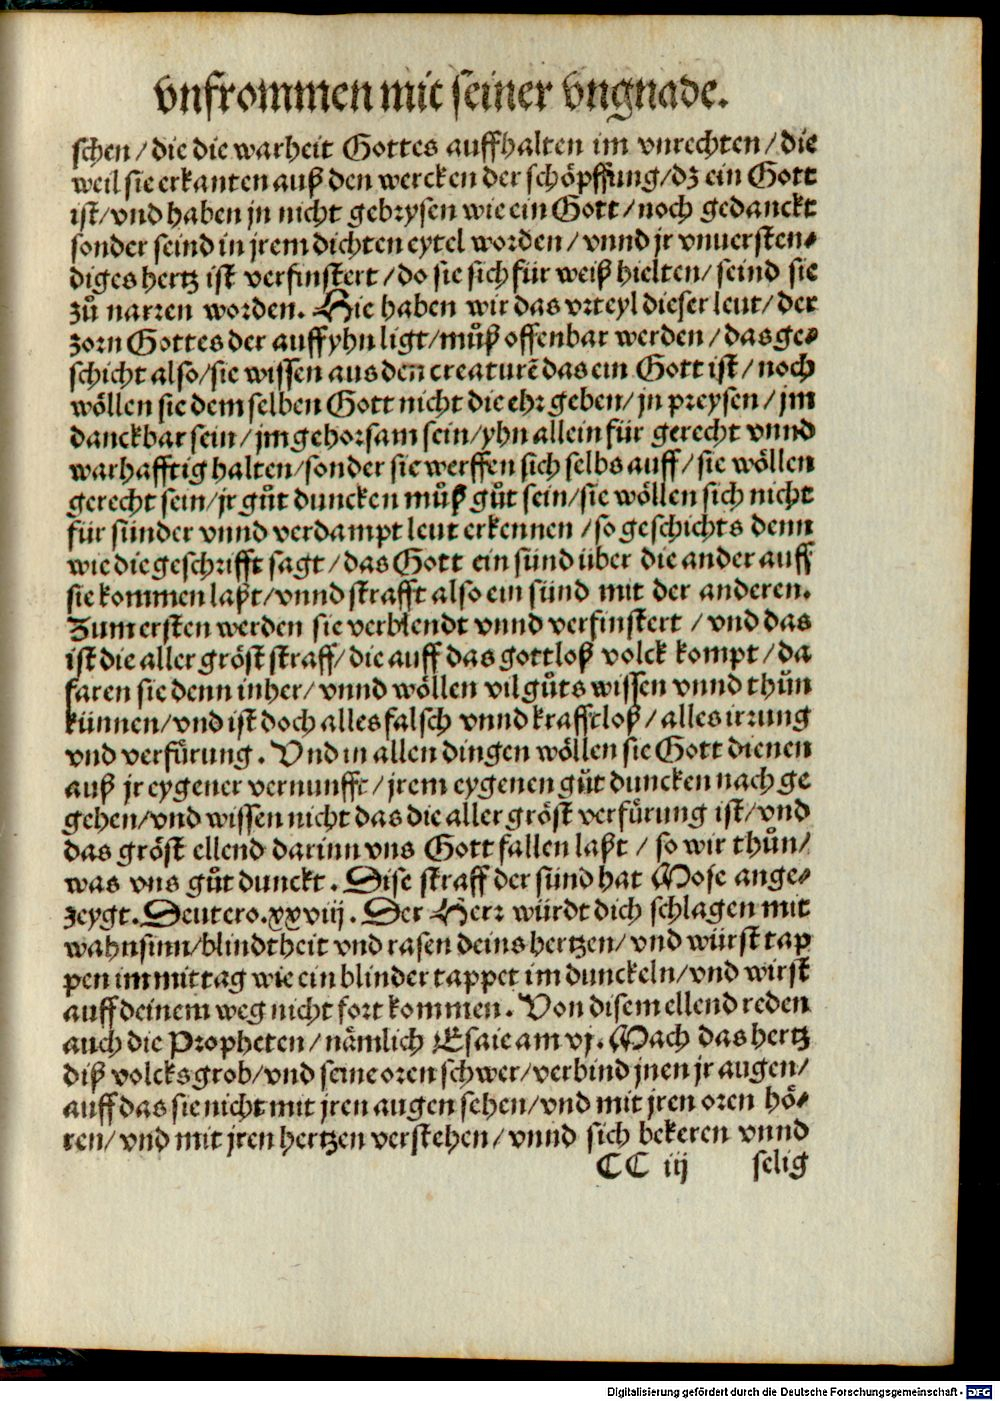 vnfrommen mit seiner vngnade.
schen / die die warheit Gottes auffhalten im vnrechten / die
weil sie erkanten auß den wercken der schöpffung / dz ein Gott
ist / vnd haben jn nicht gebrysen wie ein Gott / noch gedanckt
sonder seind in jrem dichten eytel worden / vnnd jr vnuersten⸗
diges hertz ist verfinstert / do sie sich für weiß hielten / seind sie
zů narren worden. Hie haben wir das vrteyl dieser leut / der
zorn Gottes der auff yhn ligt / můß offenbar werden / das ge⸗
schicht also / sie wissen aus den creaturẽ das ein Gott ist / noch
wöllen sie dem selben Gott nicht die ehr geben / jn preysen / jm
danckbar sein / jm gehorsam sein / yhn allein für gerecht vnnd
warhafftig halten / sonder sie werffen sich selbs auff / sie wöllen
gerecht sein / jr gůt duncken můß gůt sein / sie wöllen sich nicht
für sünder vnnd verdampt leut erkennen / so geschichts denn
wie die geschrifft sagt / das Gott ein sünd über die ander auff
sie kommen laßt / vnnd strafft also ein sünd mit der anderen.
Zum ersten werden sie verblendt vnnd verfinstert / vnd das
ist die aller gröst straff / die auff das gottloß volck kompt / da
faren sie denn inher / vnnd wöllen vil gůts wissen vnnd thůn
künnen / vnd ist doch alles falsch vnnd krafftloß / alles irrung
vnd verfürung. Vnd in allen dingen wöllen sie Gott dienen
auß jr eygener vernunfft / jrem eygenen gůt duncken nach ge
gehen / vnd wissen nicht das die aller gröst verfürung ist / vnd
das gröst ellend darinn vns Gott fallen laßt / so wir thůn /
was vns gůt dunckt. Dise straff der sünd hat Mose ange⸗
zeygt. Deutero. xxviij. Der Herr würdt dich schlagen mit
wahnsinn / blindtheit vnd rasen deins hertzen / vnd würst tap
pen im mittag wie ein blinder tappet im dunckeln / vnd wirst
auff deinem weg nicht fort kommen. Von disem ellend reden
auch die Propheten / nämlich Esaie am vj. Mach das hertz
diß volcks grob / vnd seine oren schwer / verbind jnen jr augen /
auff das sie nicht mit jren augen sehen / vnd mit jren oren hö⸗
ren / vnd mit jren hertzen verstehen / vnnd sich bekeren vnnd
CC iij selig
Digitalisierung gefördert durch die Deutsche Forschungsgemeinschaft - DFG